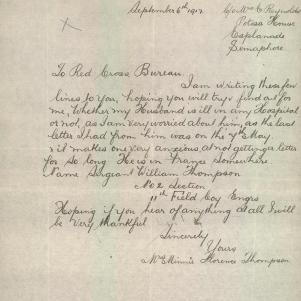 September 6th 1917
C/o Mrs C Reynolds
Potsa House
Esplanade
Semaphore
To Red Cross Bureau
I am writing these few
lines to you, hoping you will try & find out for
me, Whether my Husband is ill in any Hospital
or not, as I am very worried about him, as the last
letter I had from him was on the 7th May.
& it makes one very anxious at not getting a letter
for so long He is in France Somewhere.
Name Sergant William Thompson
No 2 Section
11th Field Coy Engrs
Hoping if you hear of anything at all I will
be very thankful
Sincerely
Yours
Mrs Minnie Florence Thompson